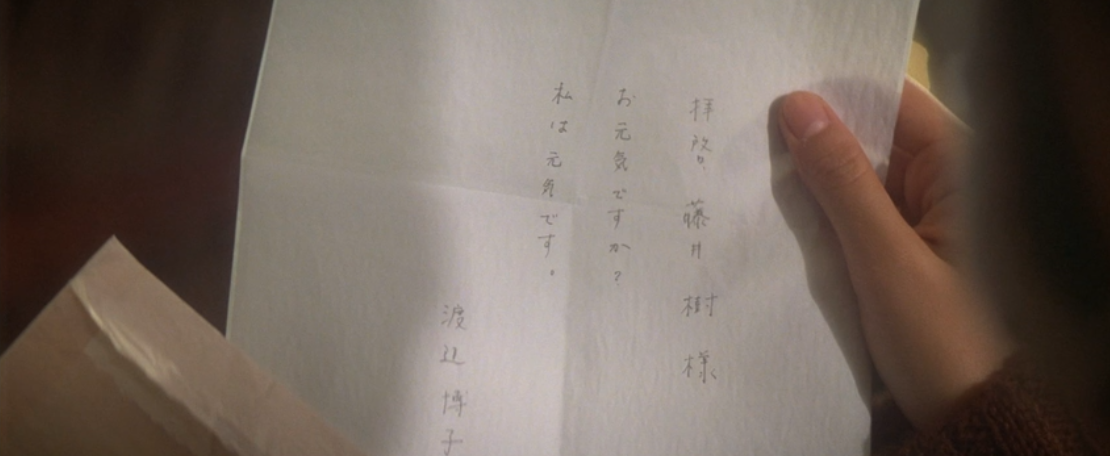 拝啓、藤井樹様
お元気ですか?
私は元気です。
渡辺博子